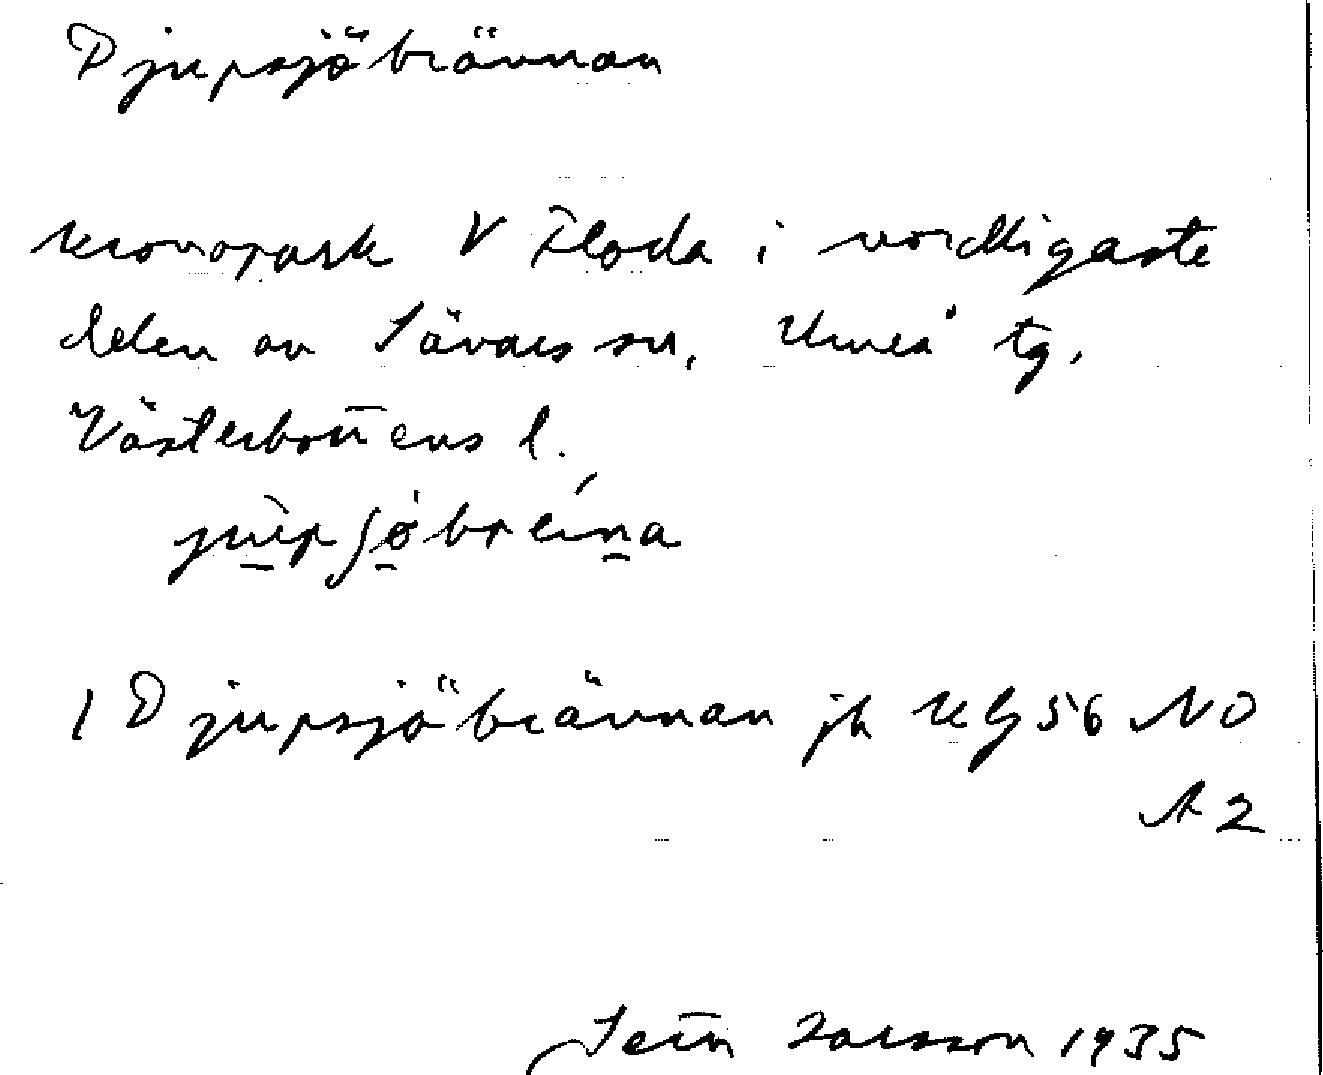 Djupsjöbrännan
kronopark V Floda i nordligaste
delen av Sävars sn, Umeå tg,
Västerbottens l.
1 Djupsjöbrännan jh KG 56 NO
A2
Larsson 1935